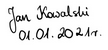 Jan Kowalski
01.01.2021r.